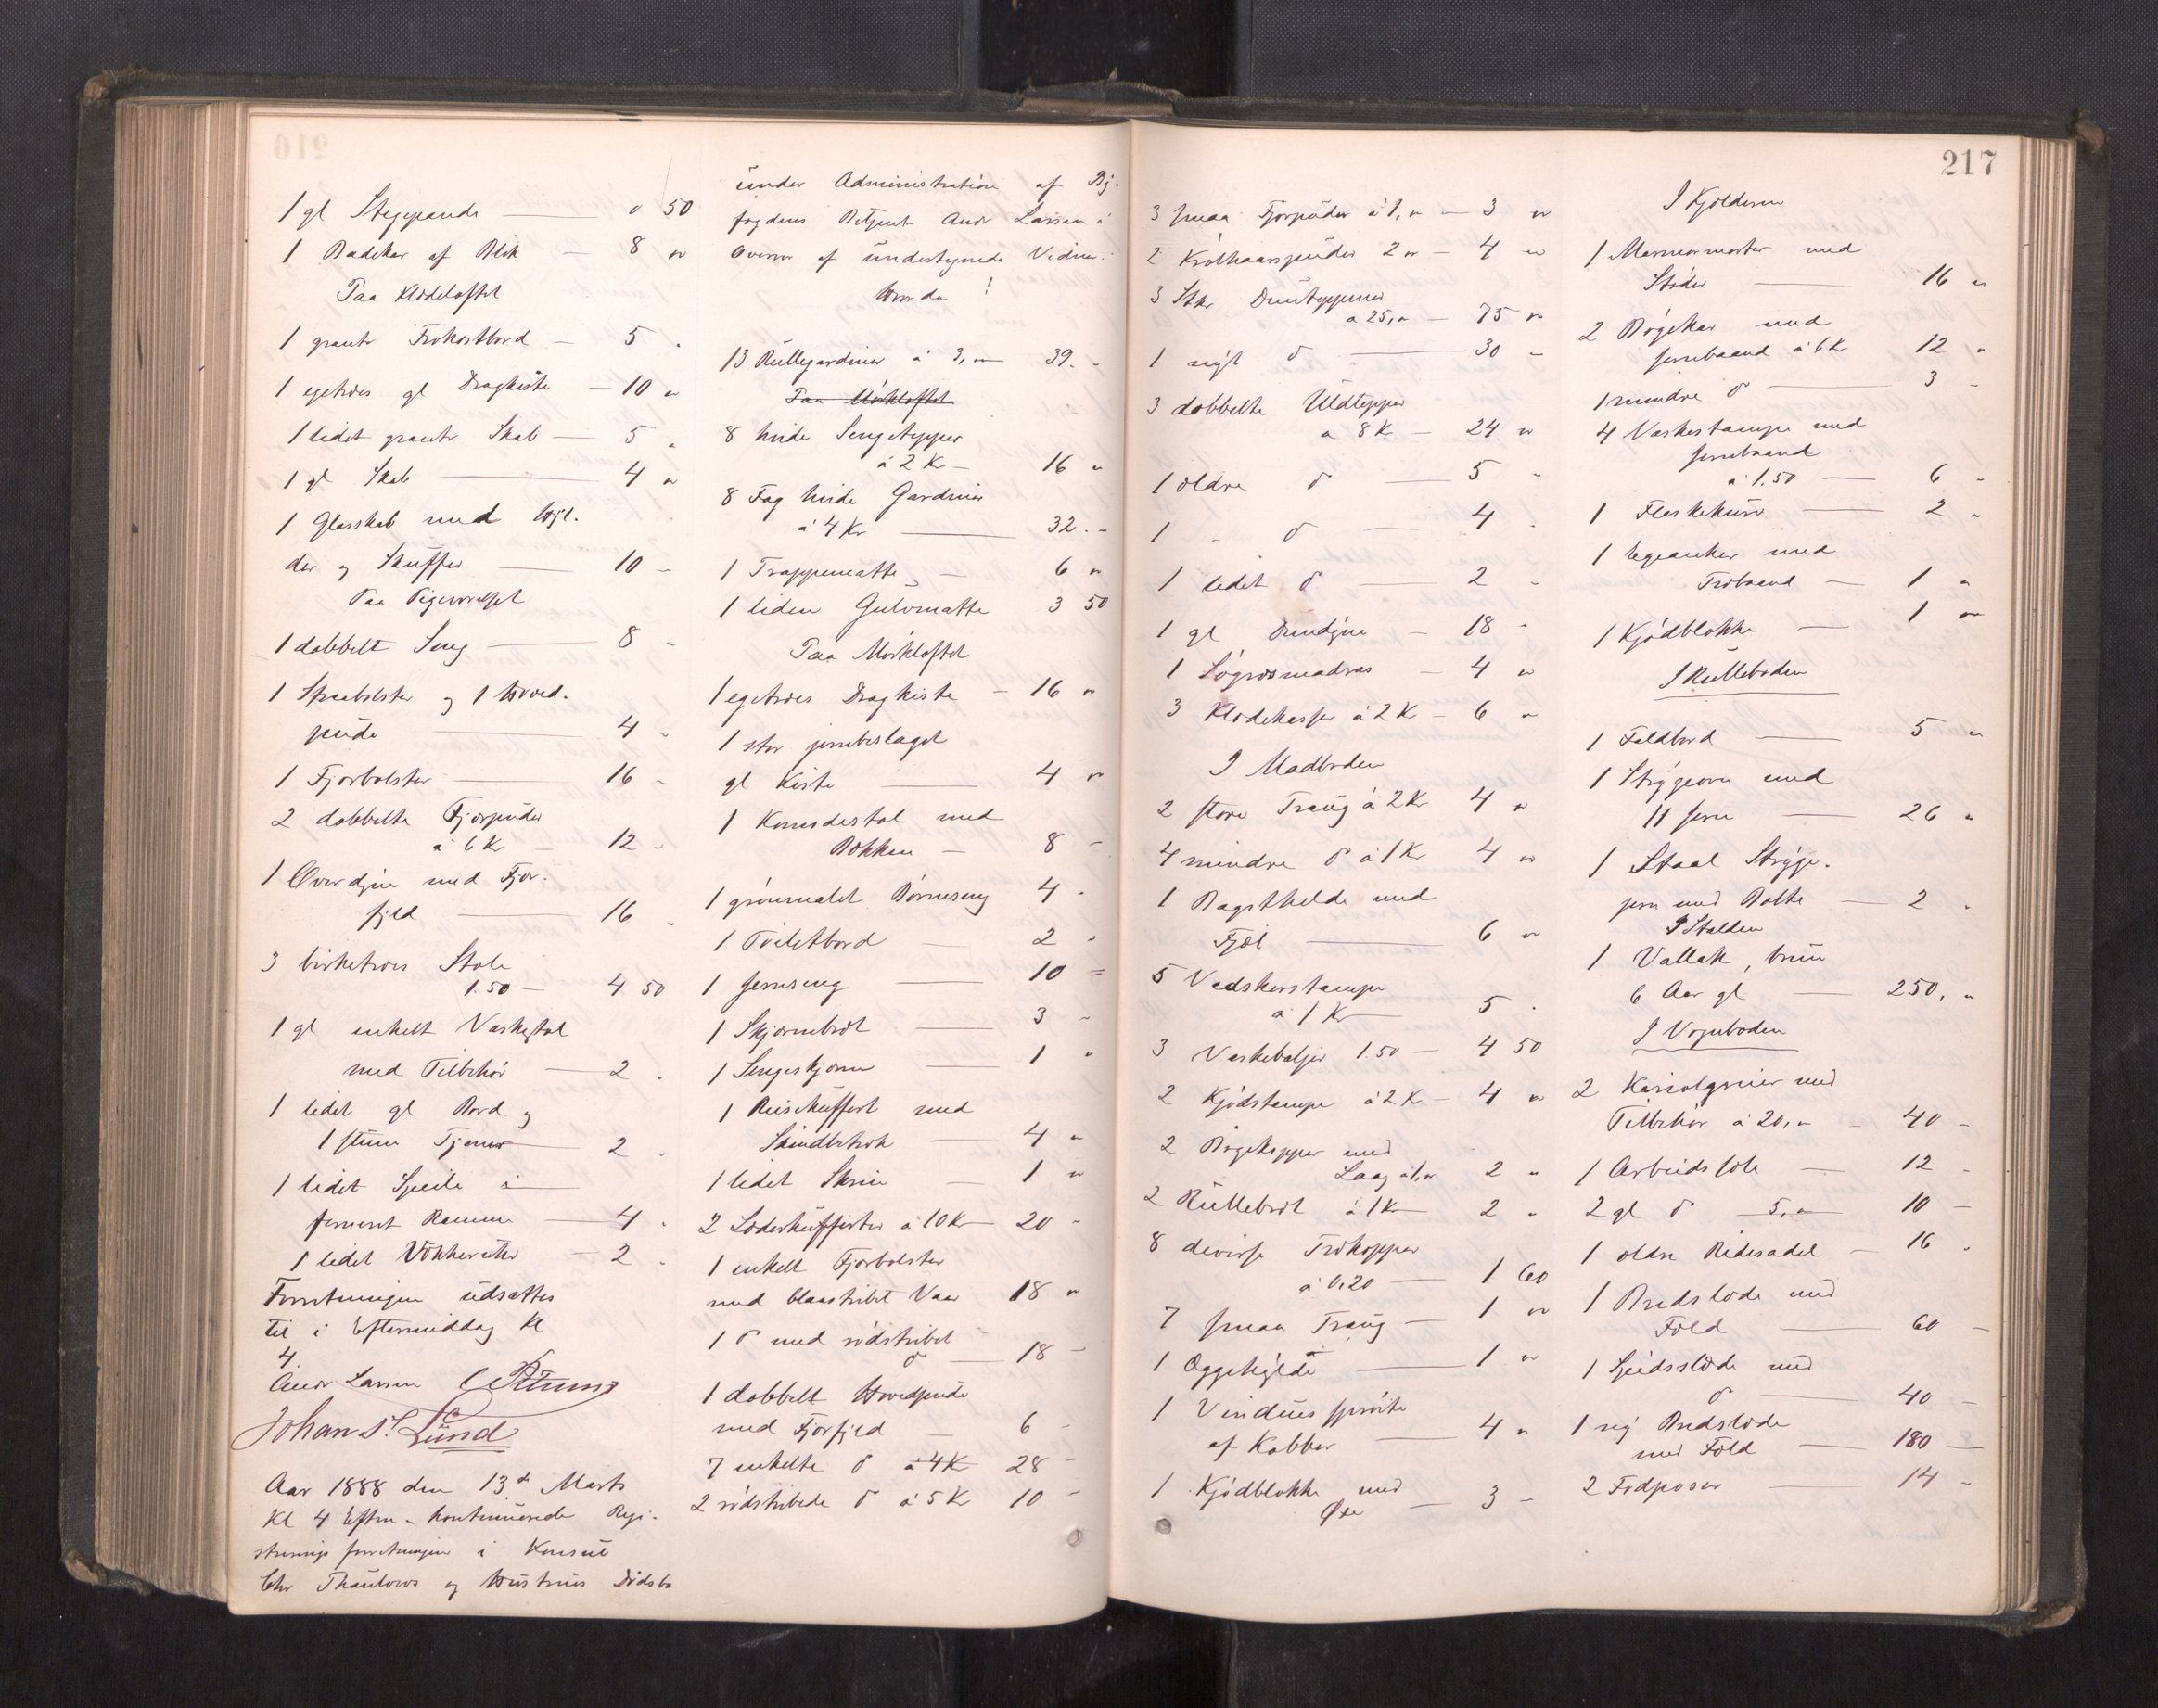 1 gl Stegepande — " 50
1 Badekar af Blik — 8 "
Paa Klædeloftet
1 grant Frokostbord — 5 "
1 egetræes gl Dragkiste — 10 "
1 lidet grant Skab — 5 "
1 gl Skab — 4 "
1 Glasskab med Hyl-
der og Skuffer — 10 "
Paa Pigeværelset
1 dobbelt Seng — 8 "
1 Straabolster og 1 Hoved-
pude — 4 "
1 Fjærbolster — 16 "
2 dobbelte Fjærpuder
à 6 Kr — 12 "
1 Overdyne med Fjær-
fyld — 16 "
3 birketræes Stole
1.50 — 4 50
1 gl enkelt Vaskestol
med Tilbehør — 2 "
1 lidet gl Bord og
1 stum Tjener — 2 "
1 lidet Speile i
ferneret Ramme — 4 "
1 lidet Vækkeruhr — 2 "
Forretningen udsattes
til i Eftermiddag Kl
4.
Andr Larsen
Johan S. Lund
Aar 1888 den 13de Marts
Kl 4 Efterm. kontinuerede Regi-
streringsforretningen i Konsul
Chr Thaulows og Hustrues Dødsbo
under Administration af By-
fogdens Betjent Andr Larsen i
Overvær af undertegnede Vidner.
Hvorda !
13 Rullegardiner à 3," — 39. "
Paa Mørkloftet
8 hvide Sengetepper
à 2 Kr — 16 "
8 Fag hvide Gardiner
à 4 Kr — 32. "
1 Trappematte — 6 "
1 liden Gulvmatte 3 50
Paa Mørkloftet
1 egetræes Dragkiste — 16 "
1 stor jernbeslaget
gl Kiste — 4 "
1 Komodestol med
Bækken — 8 "
1 grønmalet Børneseng 4 "
1 Toiletbord — 2 "
1 Jernseng — 10 "
1 Skjærmbræt — 3 "
1 Sengeskjærm — 1 "
1 Reisekuffert med
Skindbetræk — 4 "
1 lidet Skrin — 1 "
2 Læderkufferter à 10 Kr — 20 "
1 enkelt Fjærbolster
med blaastribet Vaar 18 "
1 do med rødstribet
do — 18 "
1 dobbelt Hovedpude
med Fjærfyld — 6 "
7 enkelte do à 4 Kr 28 "
2 rødstribede do à 5 Kr 10 "
217
3 smaa Fjærpuder à 1," — 3 "
2 Krølhaarspuder 2 " — 4 "
3 Stkr Duntepper
à 25," — 75 "
1 nyt do — 30 "
3 dobbelte Uldtepper
à 8 Kr — 24 "
1 ældre do — 5 "
1 " do — 4 "
1 lidet do — 2 "
1 gl Dundyne — 18 "
1 Søgræsmadras — 4 "
3 Klædekasser à 2 Kr — 6 "
I Madboden
2 store Traug à 2 Kr 4 "
4 mindre do à 1 Kr 4 "
1 Bagsthelde med
Fjæl — 6 "
5 Vadskerstampe
à 1 Kr — 5 "
3 Vaskebaljer 1.50 — 4 50
2 Kjødstampe à 2 Kr — 4 "
2 Bøgekopper med
Laag à 1," 2 "
2 Rullebræt à 1 Kr 2 "
8 diverse Trækopper
à 0.20 — 1 60
7 smaa Traug — 1 "
1 Æggehylde — 1 "
1 Vinduessprøite
af Kobber — 4 "
1 Kjødblokke med
Øxe — 3 "
I Kjælderen
1 Marmormorter med
Støder — 16 "
2 Bøgekar med
Jernbaand à 6 Kr 12 "
1 mindre do — 3 "
4 Vaskestampe med
Jernbaand
à 1.50 — 6 "
1 Flaskekurv — 2 "
1 Egeanker med
Træbaand — 1 "
1 Kjødblokke — 1 "
I Rulleboden
1 Foldbord — 5 "
1 Strygeovn med
11 Jern — 26 "
1 Staal Stryge-
jern med Bolte — 2 "
I Stalden
1 Vallak, brun
6 Aar gl — 250, "
I Vognboden
2 Kariolgreier med
Tilbehør à 20," — 40 "
1 Arbeidssele — 12 "
2 gl do 5," — 10 "
1 ældre Ridesadel — 16 "
1 Bredslæde med
Fæld — 60 "
1 Spidsslæde med
do — 40 "
1 ny Bredslæde
med Fæld — 180 "
2 Fodposer — 14 "